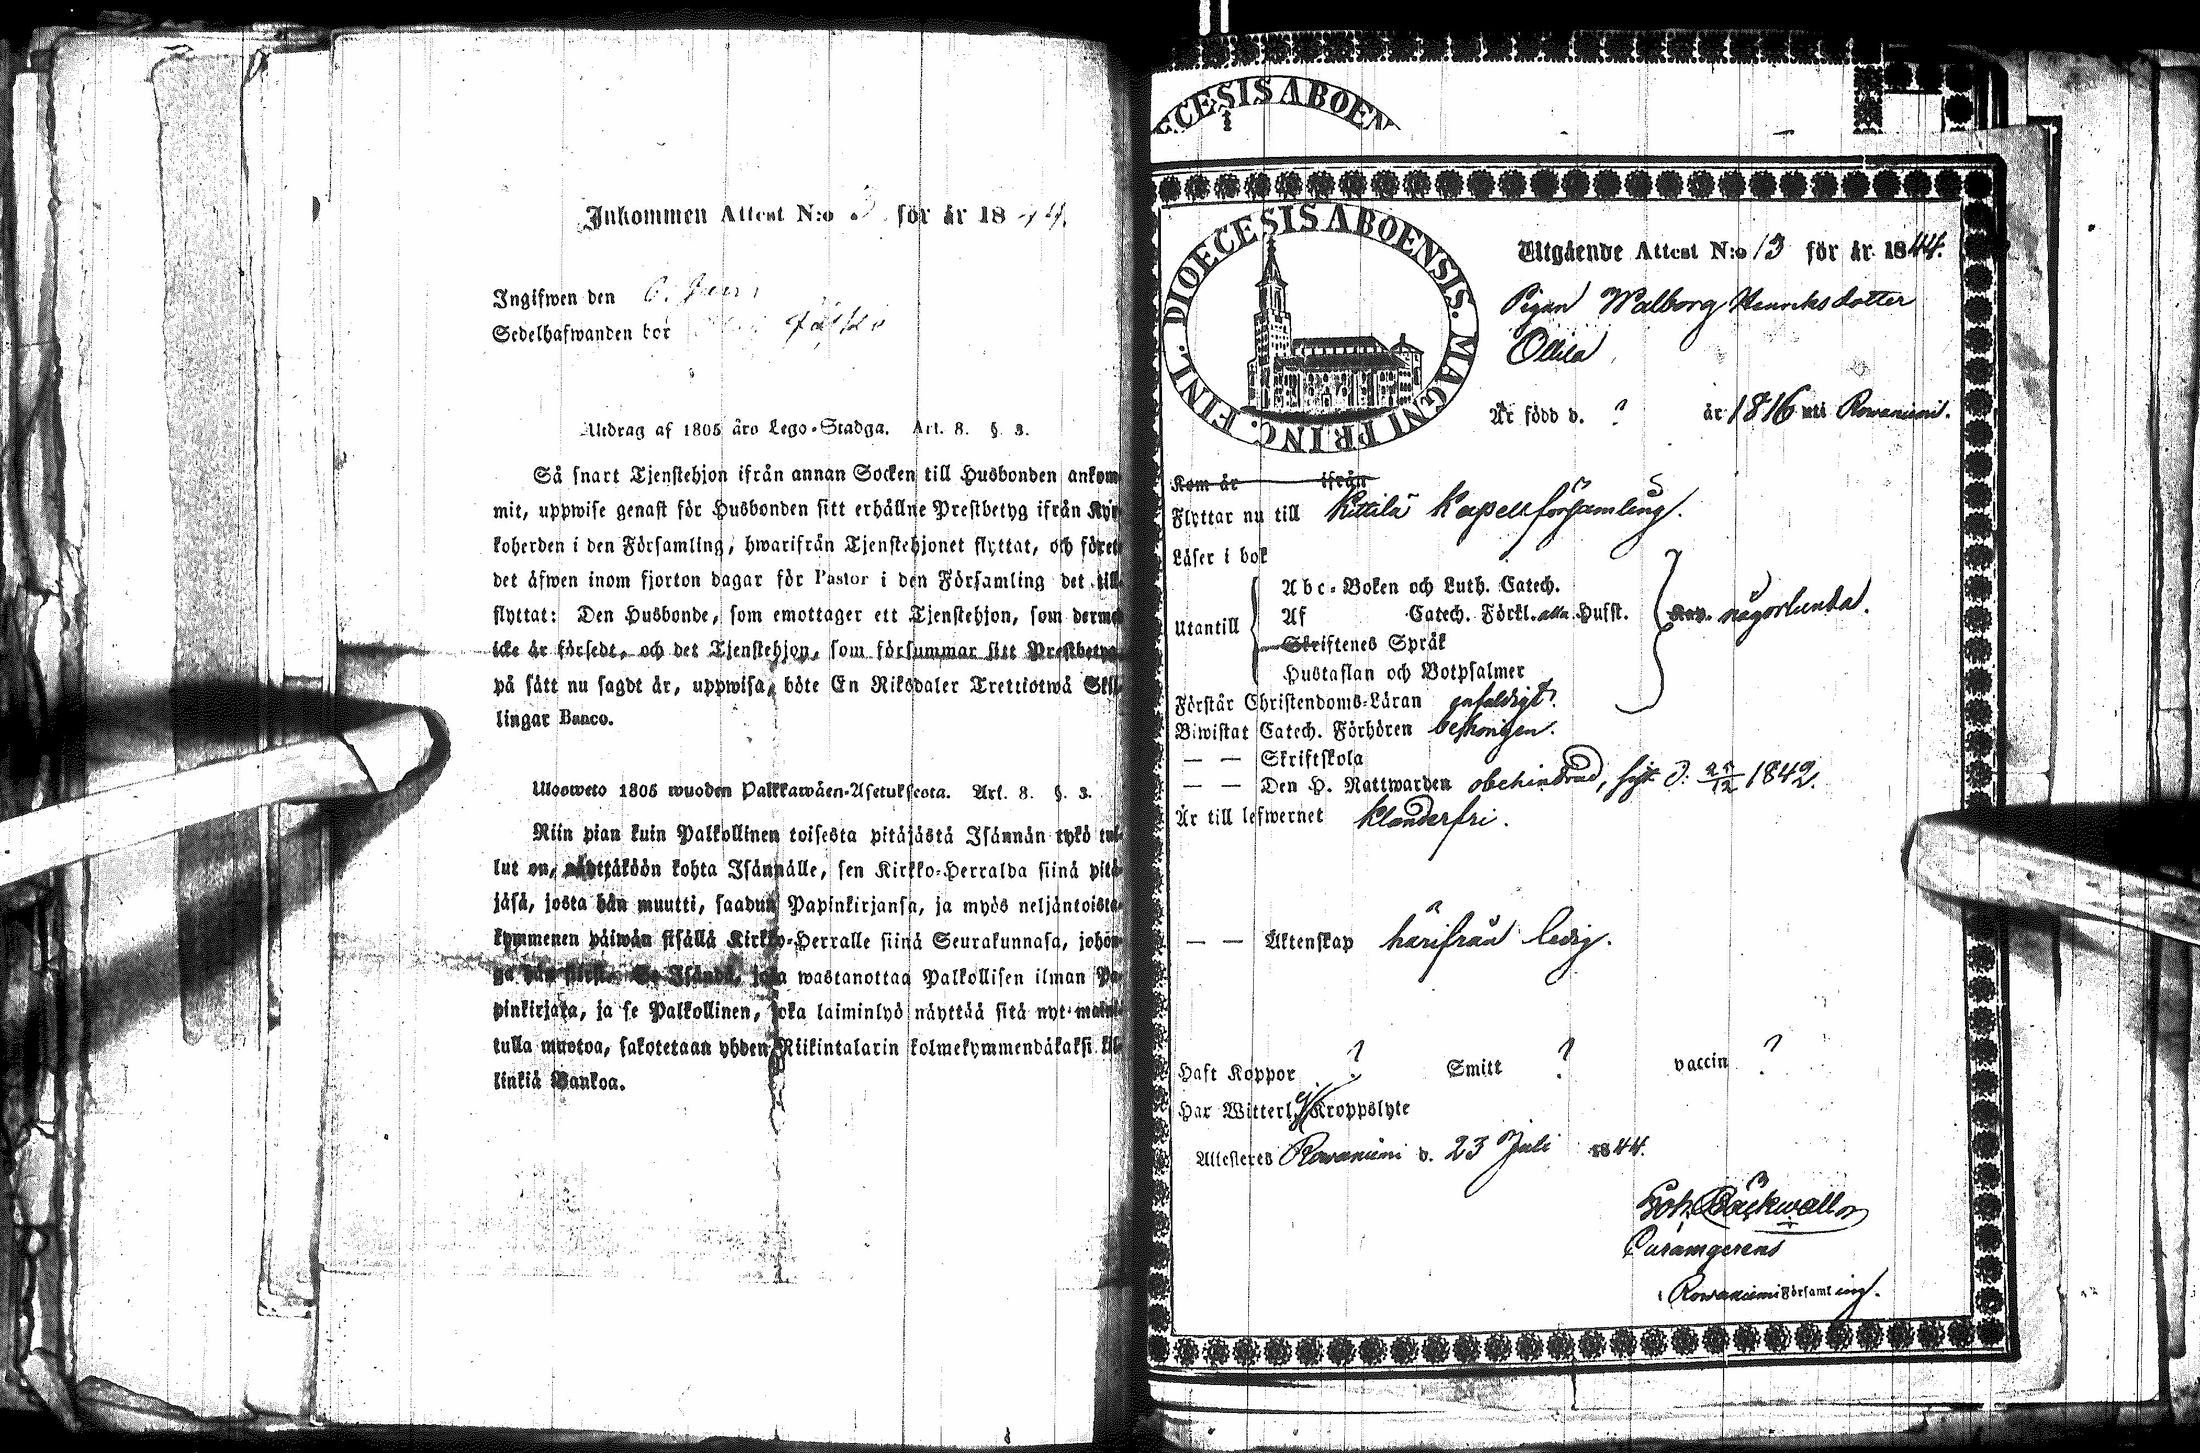 Inkommen Attest N:o 3 för år 1844.
Ingifwen den 6. Juni
Sedelhafwanden bor
Utdrag af 1805 års Lego-Stadga. Art. 8. §. 3.
Så snart Tjenstehjon ifrån annan Socken till Husbonden ankom-
mit, uppwise genast för Husbonden sitt erhållne Prestbetyg ifrån Kyr-
koherden i den Församling, hwarifrån Tjenstehjonet flyttat, och förete
det äfwen inom fjorton dagar för Pastor i den Församling det till-
flyttat: Den Husbonde, som emottager ett Tjenstehjon, som dermed
icke är försedt, och det Tjenstehjon, som försummar sitt Prestbetyg
på sätt nu sagdt är, uppwisa, böte En Riksdaler Trettiotwå Skil-
lingar Banco.
Ulosweto 1805 wuoden Palkkawäen-Asetuksesta. Art. 8. §. 3.
Niin pian kuin Palkollinen toisesta pitäjästä Isännän tykö tul-
lut on, näyttäköön kohta Isännälle, sen Kirkko-Herralda siinä pitä-
jäsä, josta hän muutti, saadun Papinkirjansa, ja myös neljäntoista-
kymmenen päiwän sisällä Kirkko-Herralle siinä Seurakunnasa, johon-
ga hän Se Isändä, joka wastanottaa Palkollisen ilman Pa-
pinkirjata, ja se Palkollinen, joka laiminlyö näyttää sitä nyt-maini-
tulla muotoa, sakotetaan yhden Riikintalarin kolmekymmendäkaksi kil-
linkiä Bankoa.
ECESIS ABOEN
DIOECESIS ABOENSIS. MAGNI PRINC. FINL.
Utgående Attest N:o 13 för år 1844.
Pigan Walborg Henriksdotter
Ollila
Är född d. ? år 1816 uti Rowaniemi.
Kom år ifrån
Flyttar nu till Kittilä Kapellförsamling.
Läser i bok
Utantill
Abc-Boken och Luth. Catech.
Af Catech. Förkl. alla Hufst. någorlunda.
Skriftenes Språk
Hustaflan och Botpsalmer
Förstår Christendoms-Läran enfaldigt.
Biwistat Catech. Förhören
— — Skriftskola
— — Den H. Nattwarden obehindrad, sist d. 1842.
Är till lefwernet klanderfri.
— — Äktenskap härifrån ledig.
Haft Koppor ? Smitt ? vaccin ?
Har Witterl. Kroppslyte
Attesteres Rowaniemi d. 23 Juli 1844.
Joh. Bäckwall
Curamgerens
i Rowaniemi Församling.